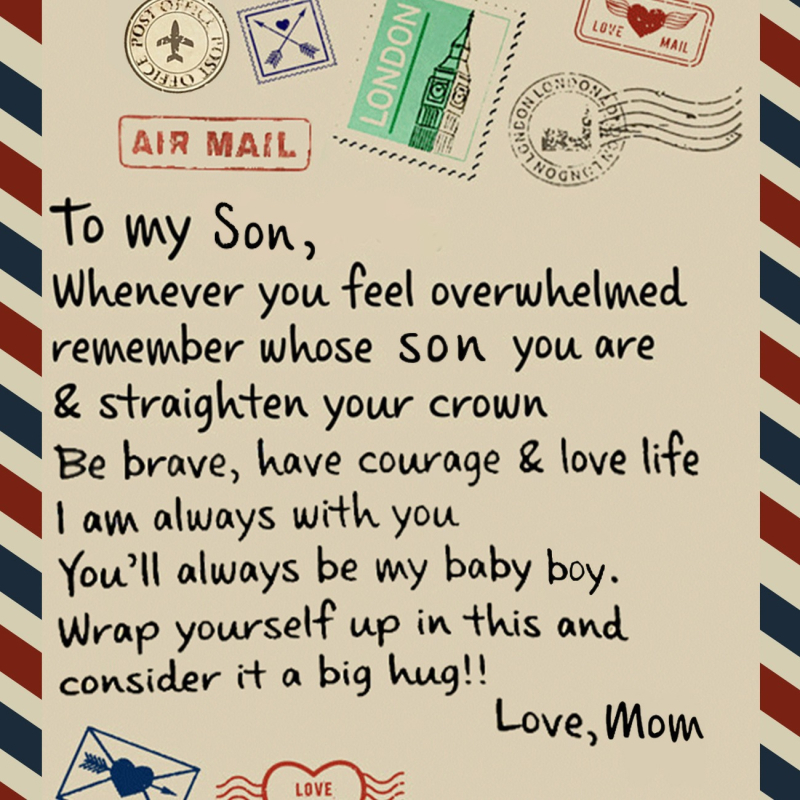 POST OFFICE POST OFFICE
LONDON
LOVE MAIL
LONDON LONDON LONDON LONDON
AIR MAIL
To my Son,
Whenever you feel overwhelmed
remember whose son you are
& straighten your crown
Be brave, have courage & love life
I am always with you
You'll always be my baby boy.
Wrap yourself up in this and
consider it a big hug!!
Love, Mom
LOVE